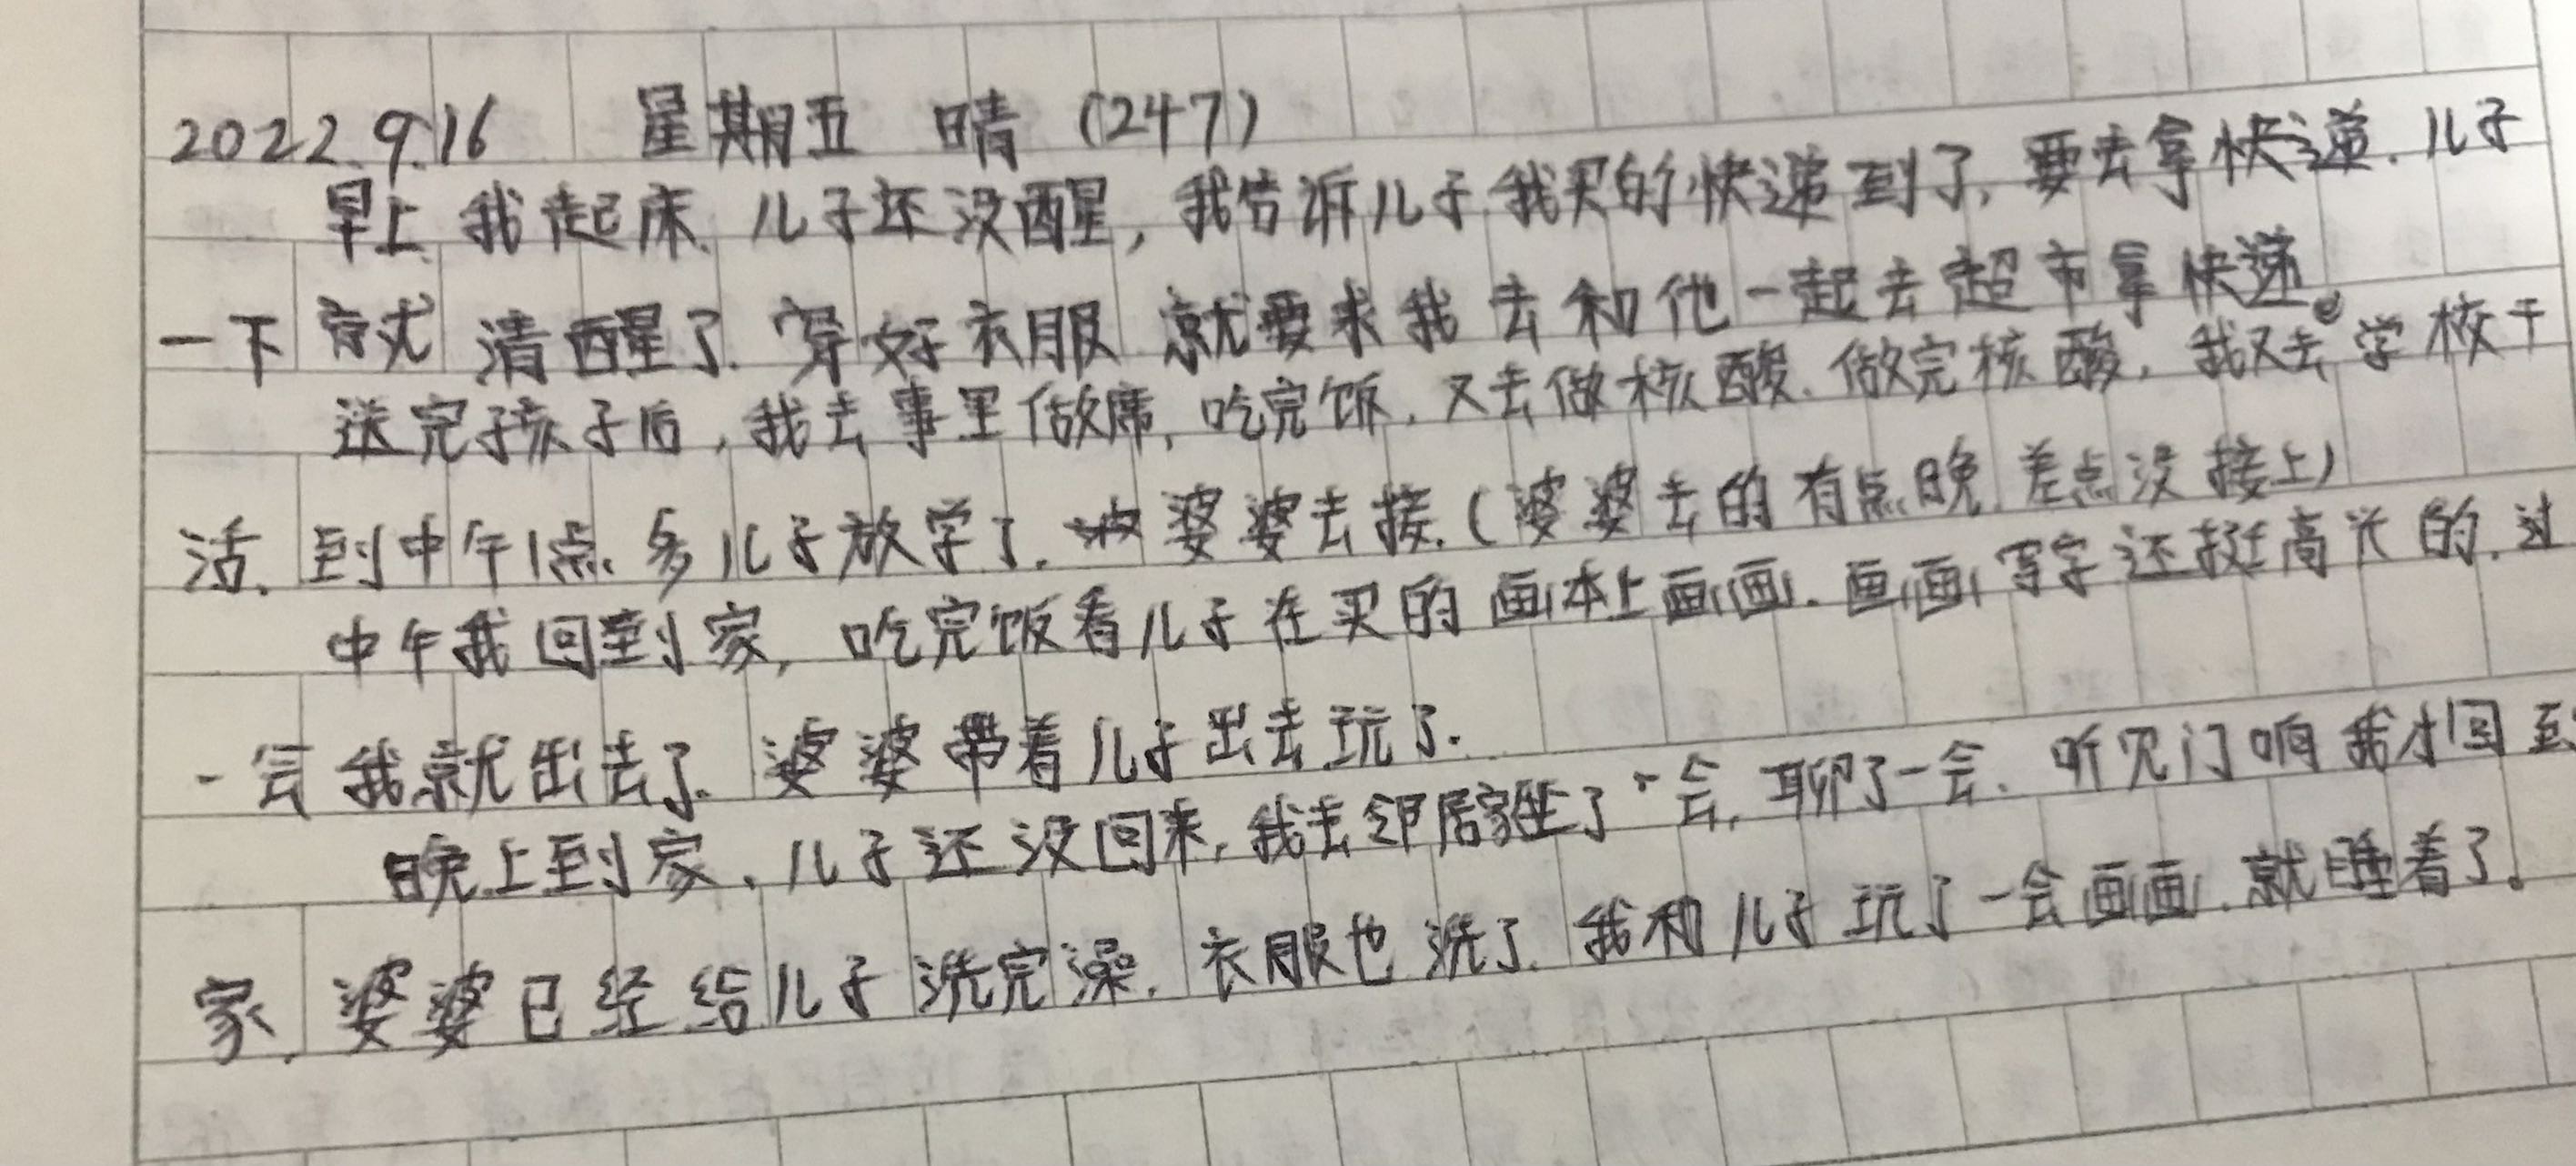 2022.9.16 星期五 晴 (247)
早上我起床.儿子还没醒,我告诉儿子,我买的快递到了,要去拿快递.儿子
一下 清醒了.穿好衣服 就要求我去和他一起去超市拿快递。
送完孩子后,我去事里做席,吃完饭,又去做核酸.做完核酸,我又去学校干
活.到中午1点多儿子放学了.婆婆去接.(婆婆去的有点晚.差点没接上)
中午我回到家,吃完饭看儿子在买的画本上画画.画画写字还挺高兴的.过
一会我就出去了.婆婆带着儿子出去玩了.
晚上到家.儿子还没回来,我去邻居家坐了一会,聊了一会.听见门响我才回到
家.婆婆已经给儿子洗完澡.衣服也洗了.我和儿子玩了一会画画.就睡着了。